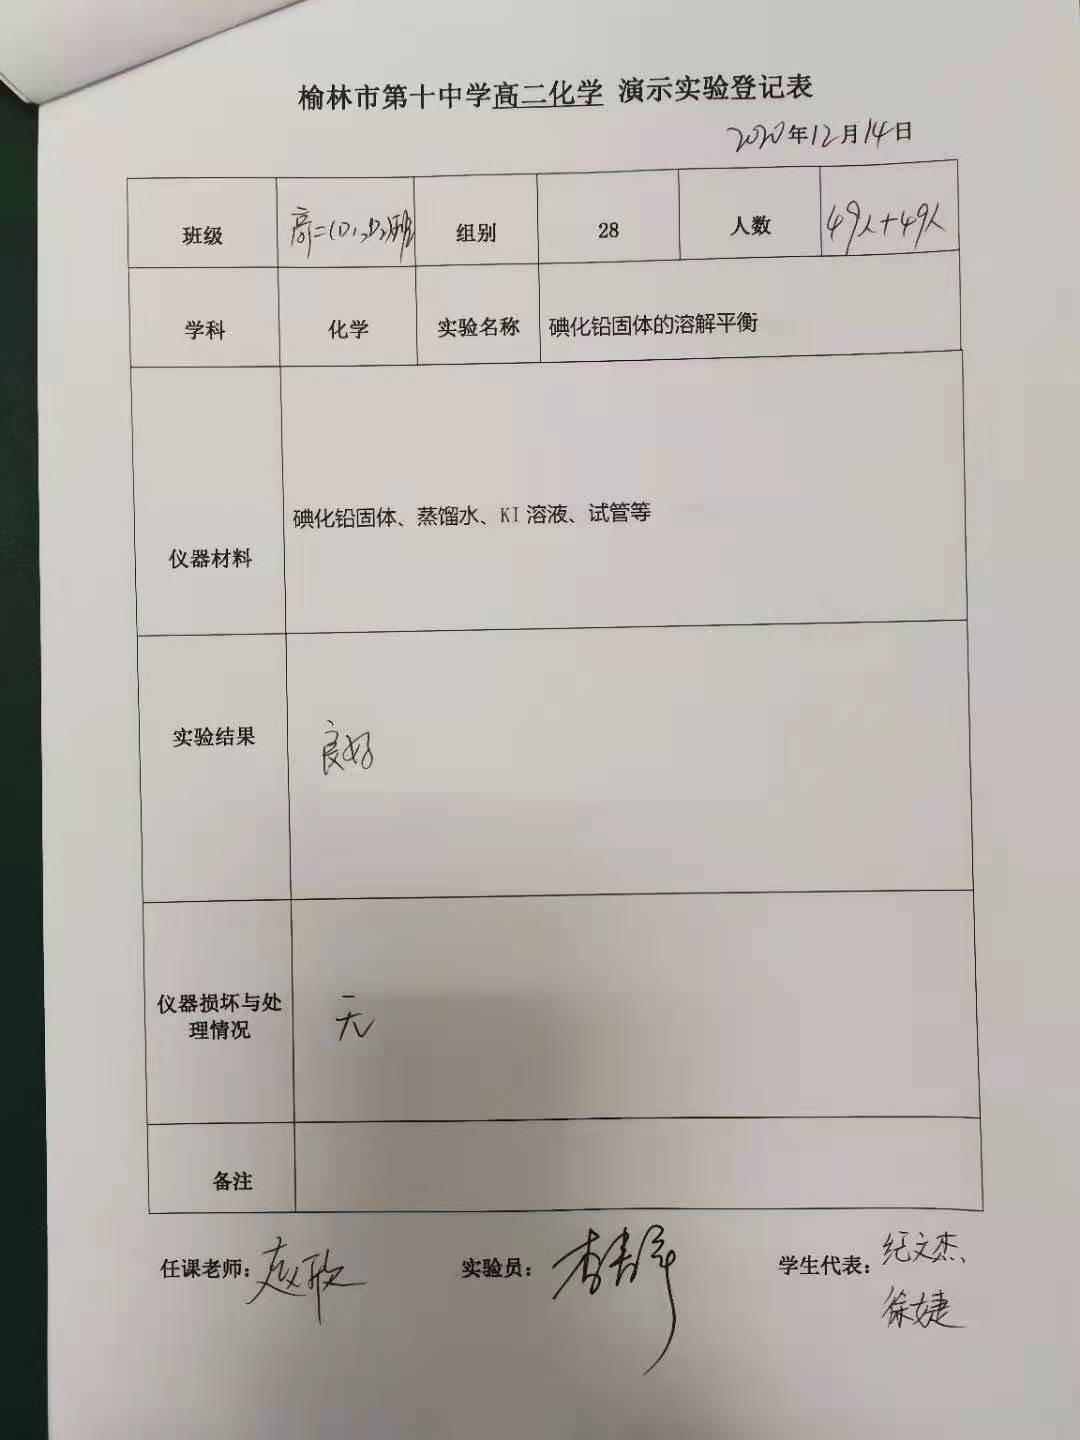 榆林市第十中学高二化学 演示实验登记表
2020年12月14日
班级 高二(1),(2)班 组别 28 人数 49人+49人
学科 化学 实验名称 碘化铅固体的溶解平衡
仪器材料 碘化铅固体、蒸馏水、KI 溶液、试管等
实验结果 良好
仪器损坏与处
理情况 无
备注
任课老师: 赵敏 实验员: 学生代表: 纪文杰、
徐婕